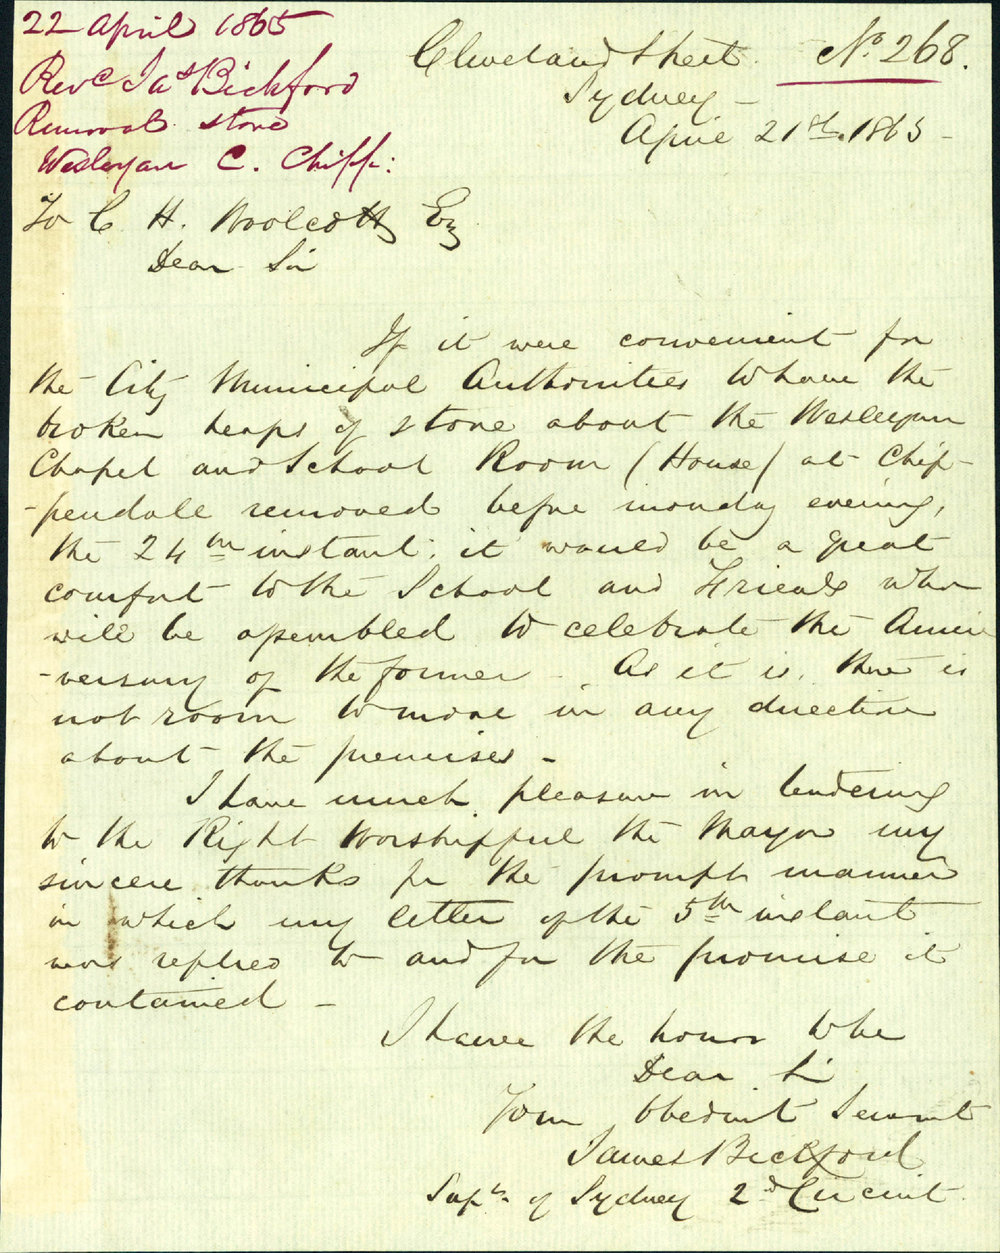 22 April 1865
Revd Jas Bickford
Removal stone
Wesleyan C. Chipp:
Cleveland Street. No. 268.
Sydney -
April 21st. 1865 -
To C. H. Woolcott Esq
Dear Sir
If it were convenient for
the City Municipal Authorities to have the
broken heaps of stone about the Wesleyan
Chapel and School Room (House) at Chip-
-pendale removed before monday evening,
the 24th instant: it would be a great
comfort to the School and Friends who
will be assembled to celebrate the Anni
-versary of the former - As it is, there is
not room to move in any direction
about the premises -
I have much pleasure in tendering
to the Right Worshipful the Mayor my
sincere thanks for the prompt manner
in which my letter of the 5th instant
was replied to and for the promise it
contained -
I have the honor to be
Dear Sir
Your Obedient Servant
James Bickford
Supt. of Sydney 2d Circuit.